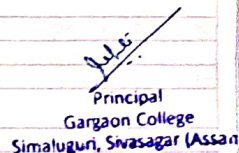 Principal
Gargaon College
Simaluguri, Sivasagar (Assam